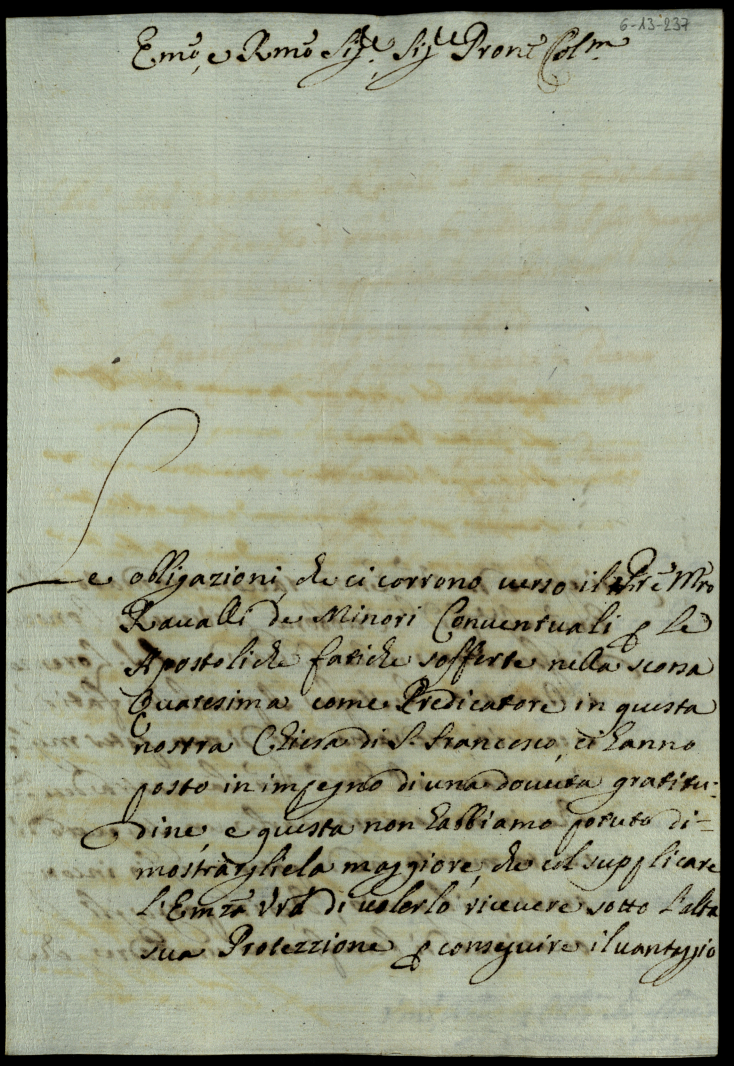 6-13-237
Emo, e Rmo Sigre, Sigre Prone Colmo
Le obligazioni, che ci corrono verso il Pre Mro
Ravalli de Minori Conventuali p le
Apostoliche fatiche sofferte nella scorsa
Quaresima come Predicatore in questa
nostra Chiesa di S. Francesco, ci hanno
posto in impegno di una dovuta gratitu-
dine, e questa non habbiamo potuto di-
mostrargliela maggiore, che col supplicare
L'Emza Vra di volerlo ricevere sotto l'alta
sua Protezzione p conseguire il vantaggio